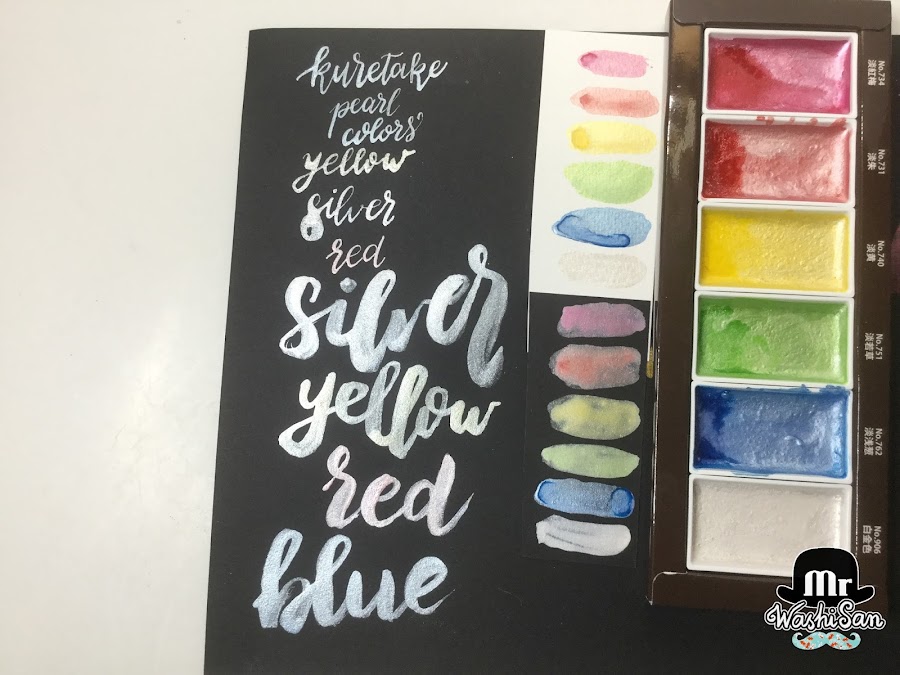 kuretake
pearl
colors
yellow
silver
red
silver
yellow
red
blue
No.734
淡紅梅
No.731
淡朱
No.740
淡黄
No.751
淡若草
No.762
淡浅葱
No.906
白金色
Mr
WashiSan